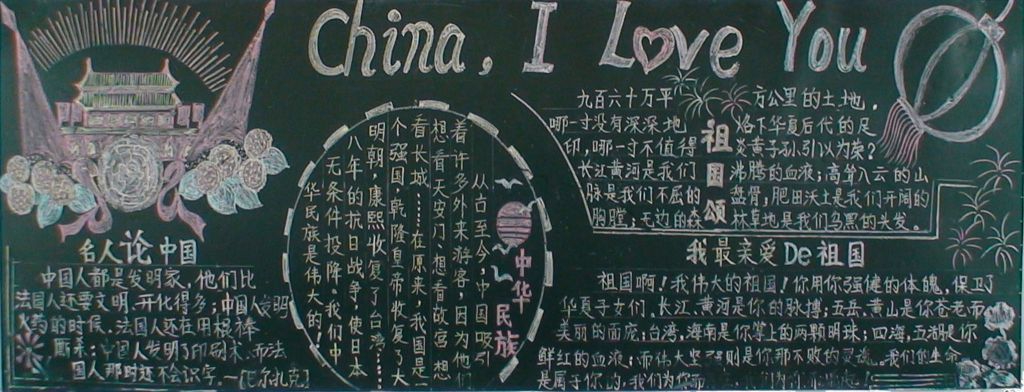 China, I Love You
名人论中国
中国人都是发明家，他们比
法国人还要文明、开化得多；中国人发明
火药的时候，法国人还在用棍棒
厮杀；中国人发明了印刷术，而法
国人那时还不会识字。—（巴尔扎克）
中华民族
从古至今，中国吸引
着许多外来游客，因为他们
想看看天安门、想看看故宫、想
看长城……在原来，我国是一
个强国，乾隆皇帝收复了大
明朝，康熙收复了台湾……
八年的抗日战争，使日本
无条件投降。我们中
华民族是伟大的。
祖国颂
九百六十万平方公里的土地，
哪一寸没有深深地烙下华夏后代的足
印，哪一寸不值得炎黄子孙引以为荣？
长江黄河是我们沸腾的血液；高耸入云的山
脉是我们不屈的盘骨；肥田沃土是我们开阔的
胸膛；无边的森林草地是我们乌黑的头发。
我最亲爱De祖国
祖国啊！我伟大的祖国！你用你强健的体魄，保卫了
华夏子女们，长江、黄河是你的脉博；五岳、黄山是你苍老而
美丽的面庞；台湾，海南是你掌上的两颗明珠；四海，五湖是你
鲜红的血液；而伟大坚则是你那不败的灵魂。我们的生命
是属于你的，我们为你而